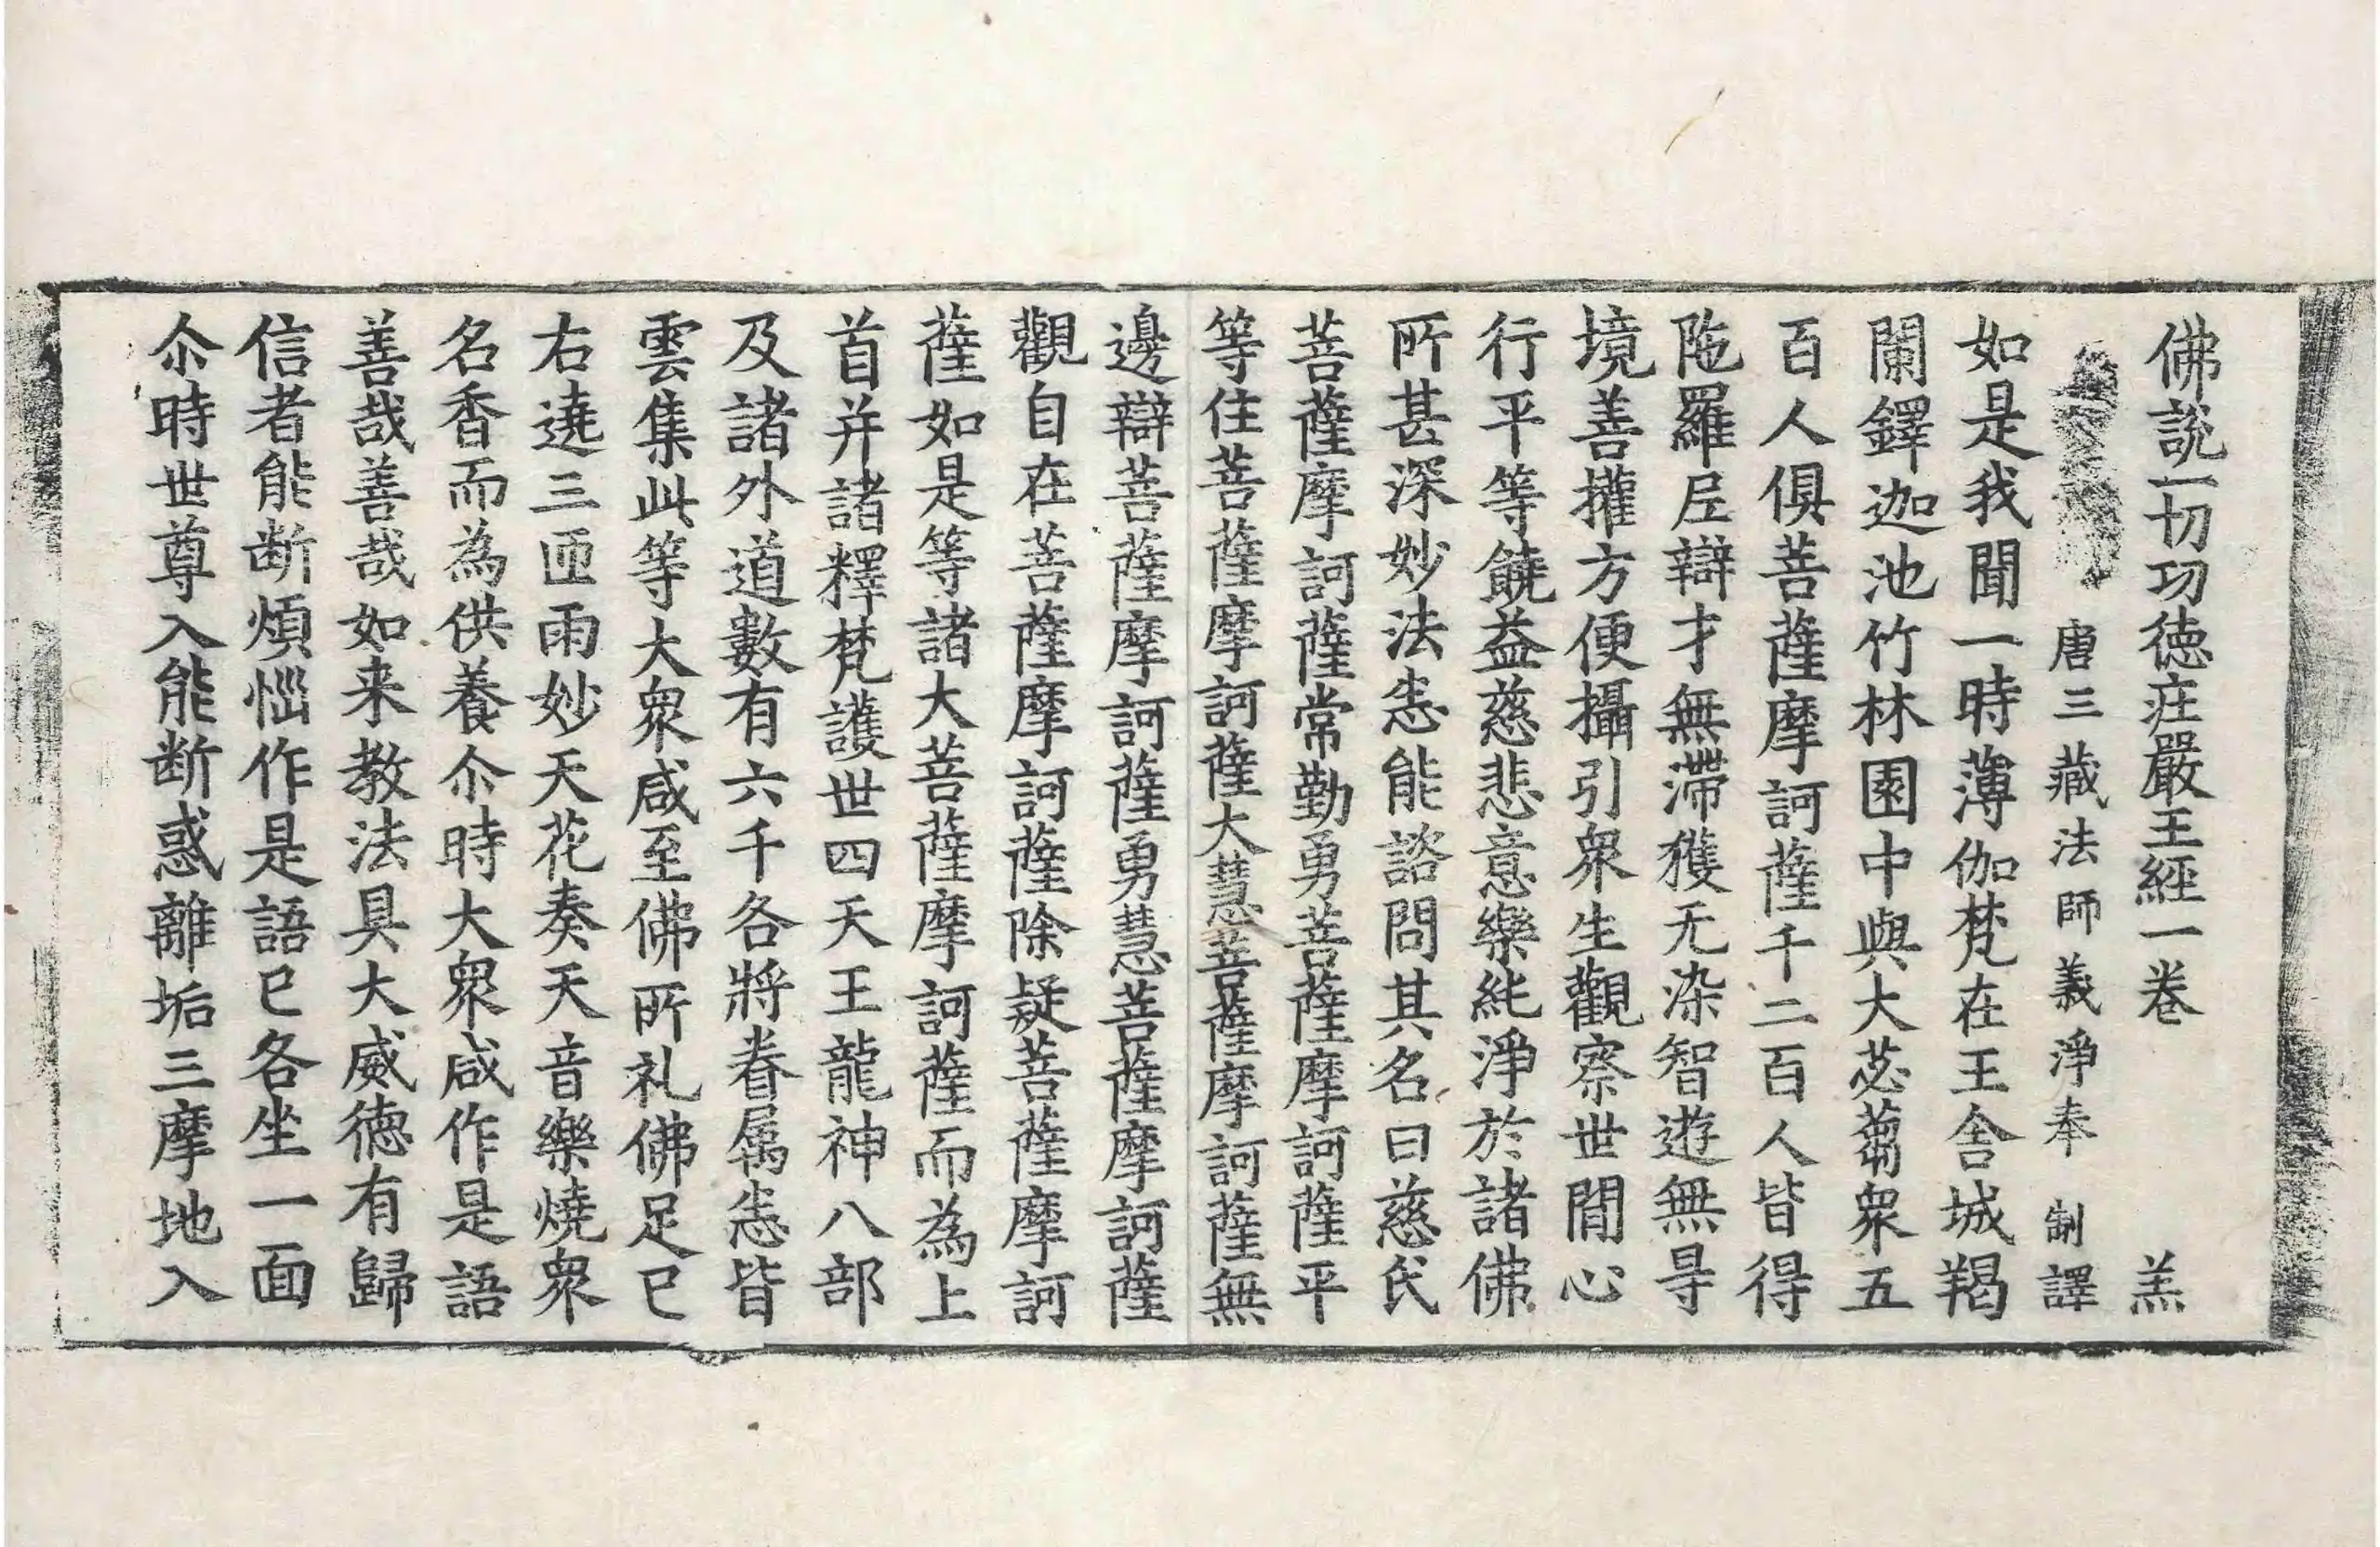 佛説一切功徳庄嚴王經一卷 羔
唐三藏法師義淨奉 制譯
如是我聞一時薄伽梵在王舍城羯
闌鐸迦池竹林園中與大苾蒭衆五
百人俱菩薩摩訶薩千二百人皆得
陁羅尼辯才無滯獲无染智遊無㝵
境善權方便攝引衆生觀察世間心
行平等饒益慈悲意樂純淨於諸佛
所甚深妙法悉能諮問其名曰慈氏
菩薩摩訶薩常勤勇菩薩摩訶薩平
等住菩薩摩訶薩大慧菩薩摩訶薩無
邊辯菩薩摩訶薩勇慧菩薩摩訶薩
觀自在菩薩摩訶薩除疑菩薩摩訶
薩如是等諸大菩薩摩訶薩而為上
首并諸釋梵護世四天王龍神八部
及諸外道數有六千各將眷属悉皆
雲集此等大衆咸至佛所礼佛足已
右遶三匝雨妙天花奏天音樂燒衆
名香而為供養尒時大衆咸作是語
善哉善哉如来教法具大威徳有歸
信者能断煩惱作是語已各坐一面
尒時世尊入能断惑離垢三摩地入